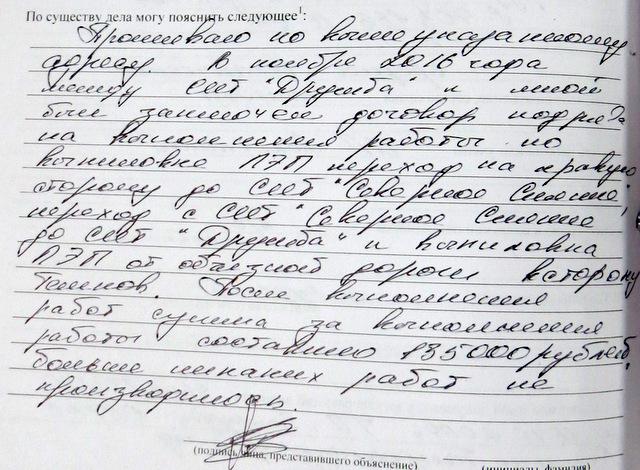 По существу дела могу пояснить следующее¹:
Проживаю по вышеуказанному
адресу. В ноябре 2016 года
между СНТ "Дружба" и мной
был заключен договор подряда
на выполнения работы по
выпиловке ЛЭП переход на правую
сторону до СНТ "Северное Сияние",
переход с СНТ "Северное Сияние"
до СНТ "Дружба" и выпиловка
ЛЭП от объезной дороги в сторону
После выполнения
работ сумма за выполнения
работы составило 135000 рублей,
больше никаких работ не
производилось.
(подпись лица, представившего объяснение)
(инициалы, фамилия)